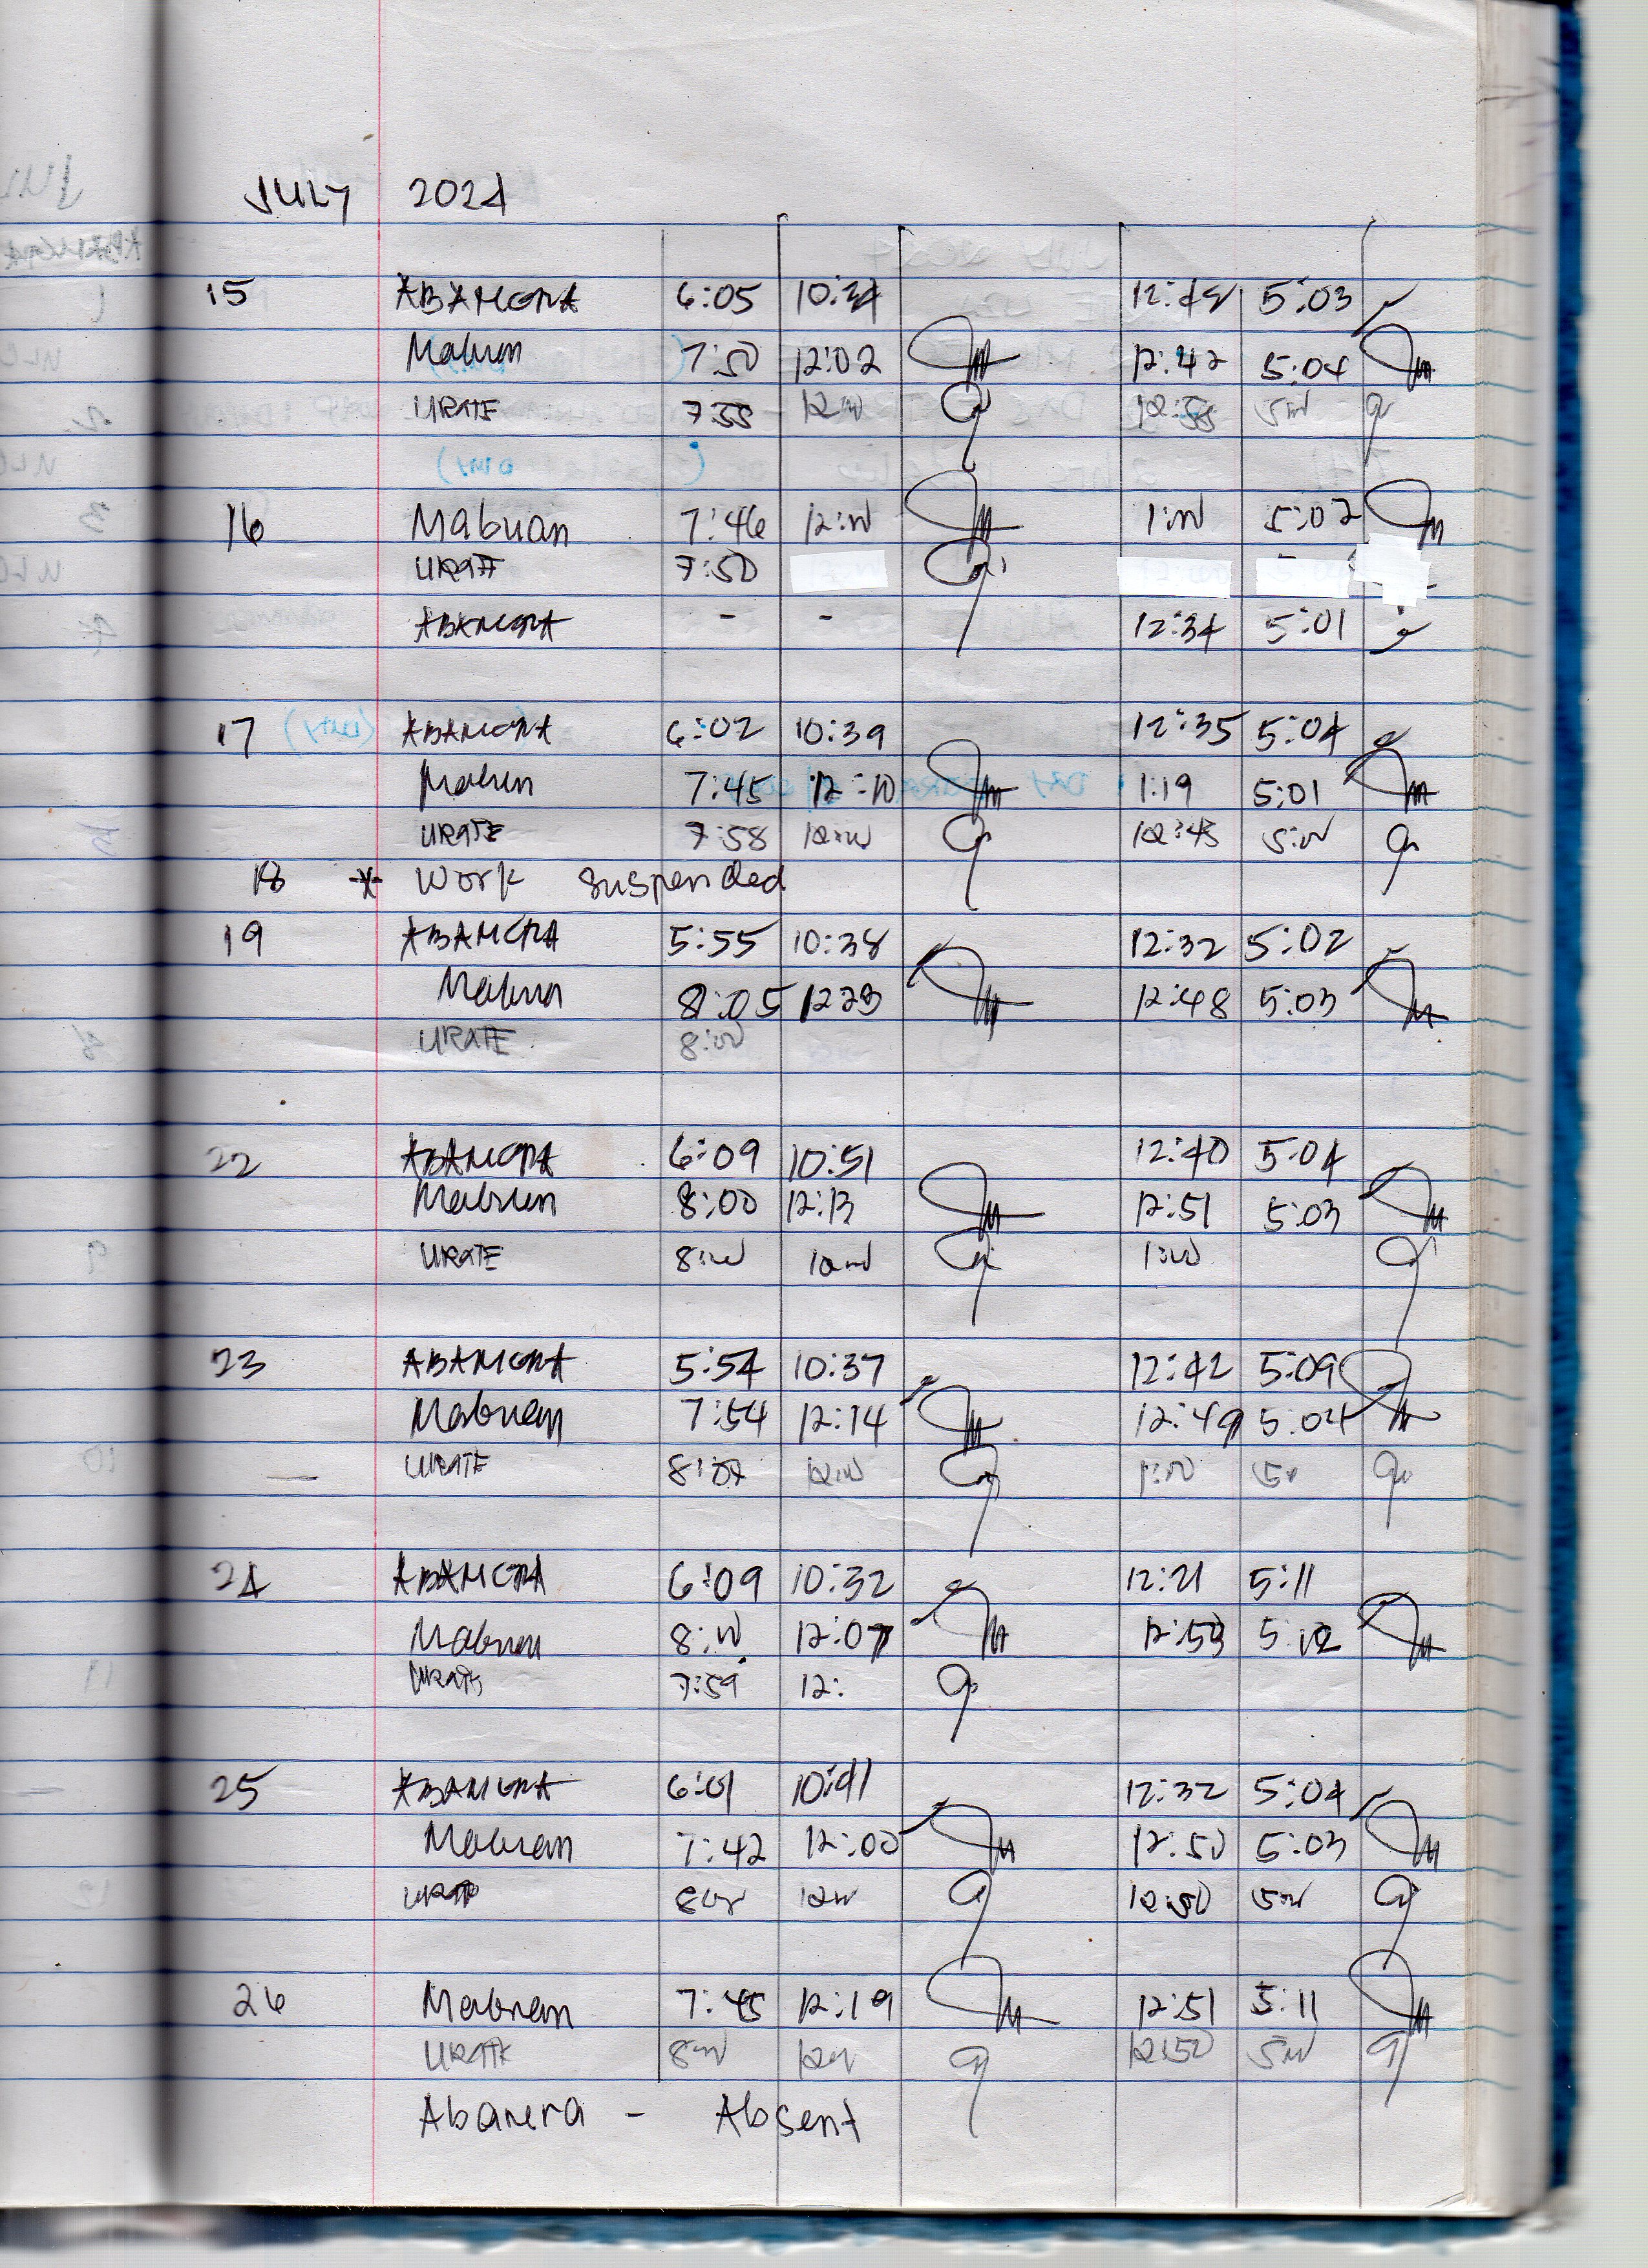 JULY 2024
15 ABAMERA 6:05 10:34 12:48 5:03
Mabuan 7:50 12:02 12:42 5:04
URATE 7:55 12:00 12:58 5:00
16 Mabuan 7:46 12:00 1:00 5:02
URATE 7:50
ABAMERA - - 12:34 5:01
17 ABAMERA 6:02 10:39 12:35 5:04
Mabuan 7:45 12:10 1:19 5:01
URATE 7:58 12:00 12:45 5:00
18 * Work suspended
19 ABAMERA 5:55 10:38 12:32 5:02
Mabuan 8:05 12:23 12:48 5:03
URATE 8:00
22 ABAMERA 6:09 10:51 12:40 5:04
Mabuan 8:00 12:13 12:51 5:03
URATE 8:00 12:00 1:00
23 ABAMERA 5:54 10:37 12:42 5:09
Mabuan 7:54 12:14 12:49 5:04
URATE 8:07 12:00 1:00 5:0
24 ABAMERA 6:09 10:32 12:21 5:11
Mabuan 8:00 12:07 12:53 5:12
URATE 7:59 12:
25 ABAMERA 6:01 10:41 12:32 5:04
Mabuan 7:42 12:00 12:50 5:03
URATE 8:00 12:00 12:50 5:00
26 Mabuan 7:45 12:19 12:51 5:11
URATE 8:00 12:00 12:50 5:00
Abamera - Absent